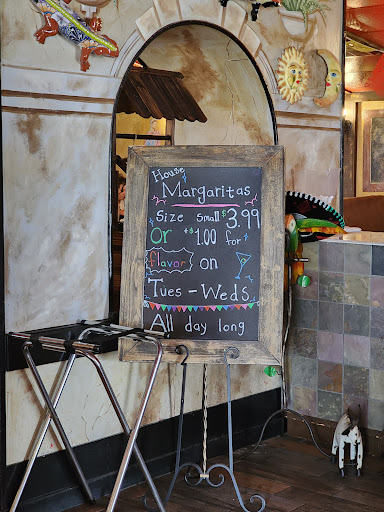 House
Margaritas
Size small $3.99
Or +$1.00 for
flavor on
Tues - Weds
All day long